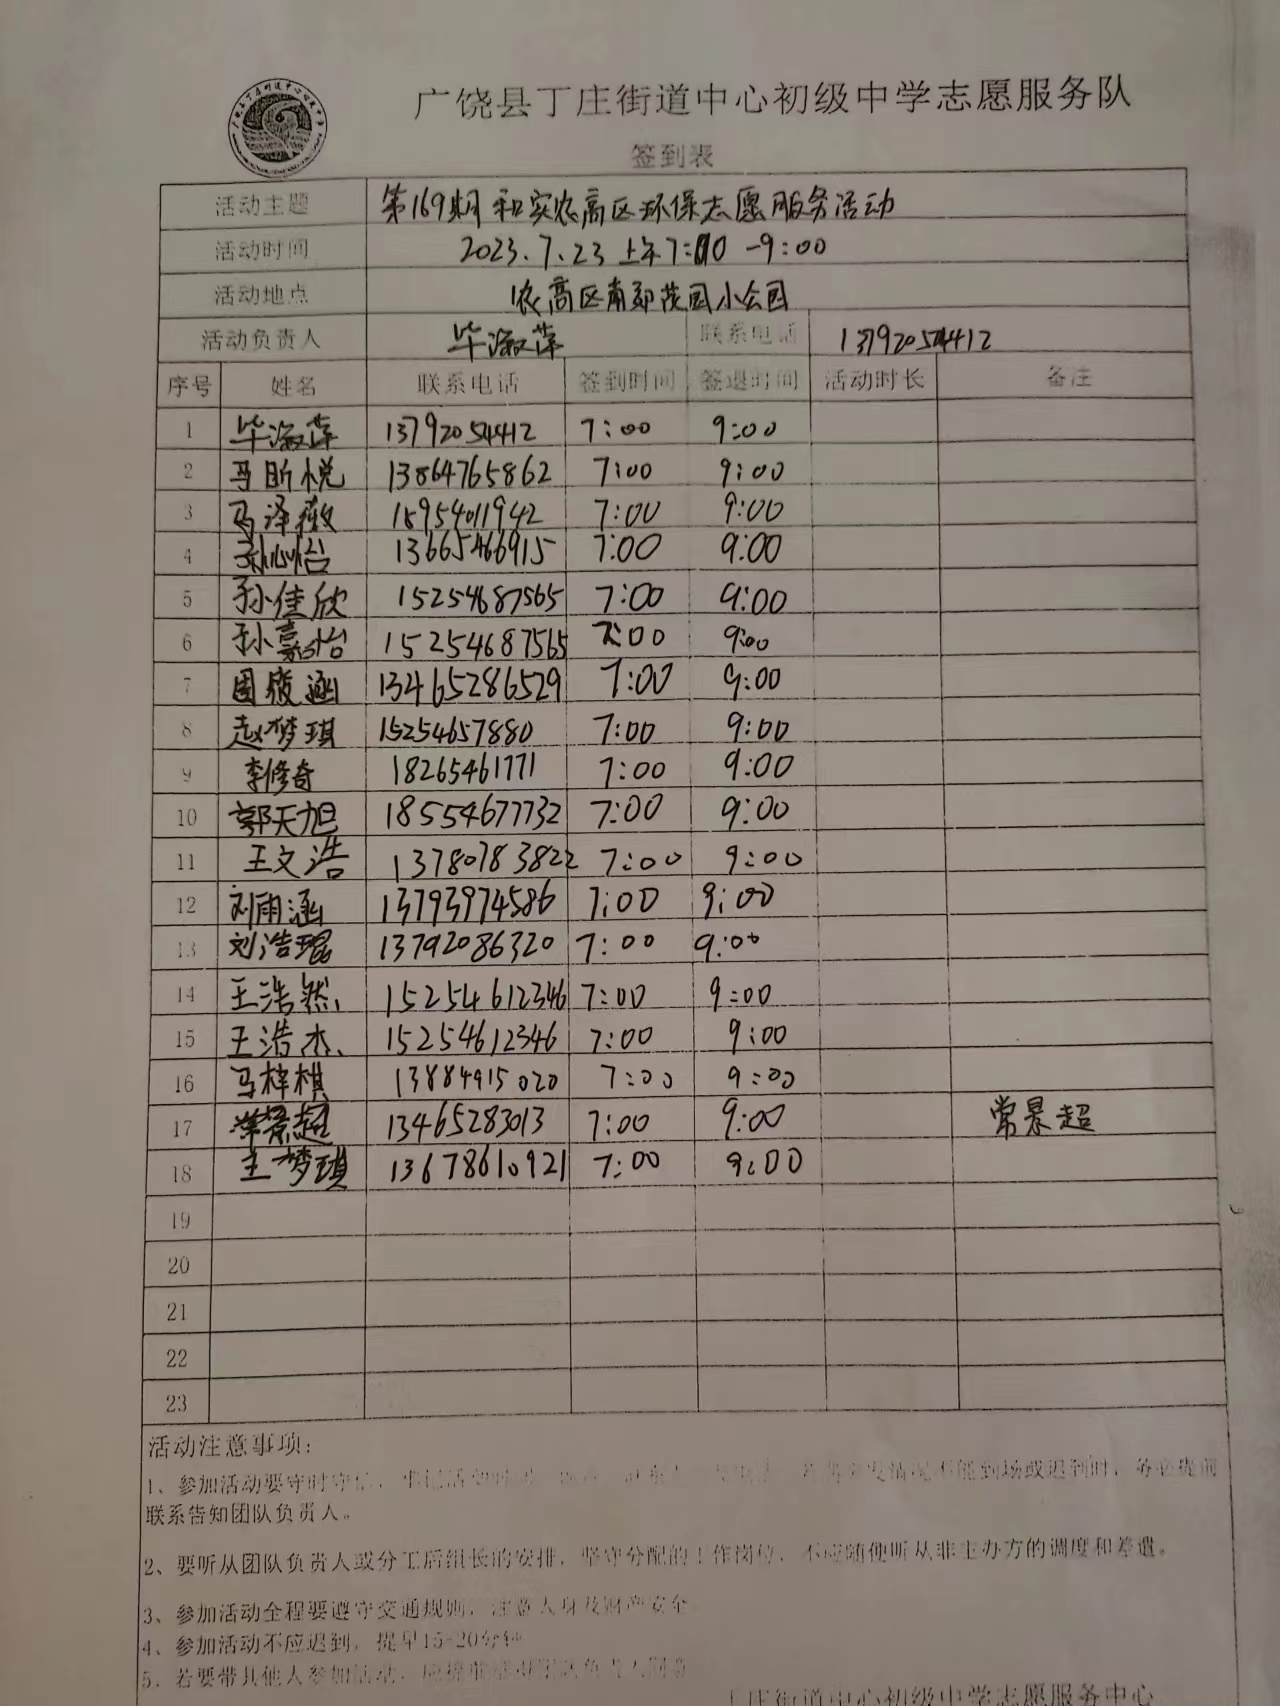 广饶县丁庄街道中心初级中学志愿服务队
签到表
活动主题 第169期和实农高区环保志愿服务活动
活动时间 2023.7.23 上午7:00-9:00
活动地点 农高区南郊茂园小公园
活动负责人 毕淑萍 联系电话 13792054412
序号 姓名 联系电话 签到时间 签退时间 活动时长 备注
1 毕淑萍 13792054412 7:00 9:00
2 马昕悦 13864765862 7:00 9:00
3 马泽薇 15954011942 7:00 9:00
4 孙心怡 13665466915 7:00 9:00
5 孙佳欣 15254687565 7:00 9:00
6 孙嘉怡 15254687565 7:00 9:00
7 周馥涵 13465286529 7:00 9:00
8 赵梦琪 15254657880 7:00 9:00
9 李修奇 18265461771 7:00 9:00
10 郭天旭 18554677732 7:00 9:00
11 王文浩 13780783822 7:00 9:00
12 刘雨涵 13793974586 7:00 9:00
13 刘浩琨 13792086320 7:00 9:00
14 王浩然 15254612346 7:00 9:00
15 王浩杰 15254612346 7:00 9:00
16 马梓棋 13884915020 7:00 9:00
17 13465283013 7:00 9:00 常景超
18 王梦琪 13678610921 7:00 9:00
19
20
21
22
23
活动注意事项:
1、参加活动要守时守信, 情况不能到场或迟到时,务必提前
联系告知团队负责人。
2、要听从团队负责人或分工后组长的安排,坚守分配的工作岗位,不应随便听从非主办方的调度和差遣。
3、参加活动全程要遵守交通规则,注意人身及财产安全
4、参加活动不应迟到,提早15-20分钟
5、若要带其他人参加活动,
丁庄街道中心初级中学志愿服务中心